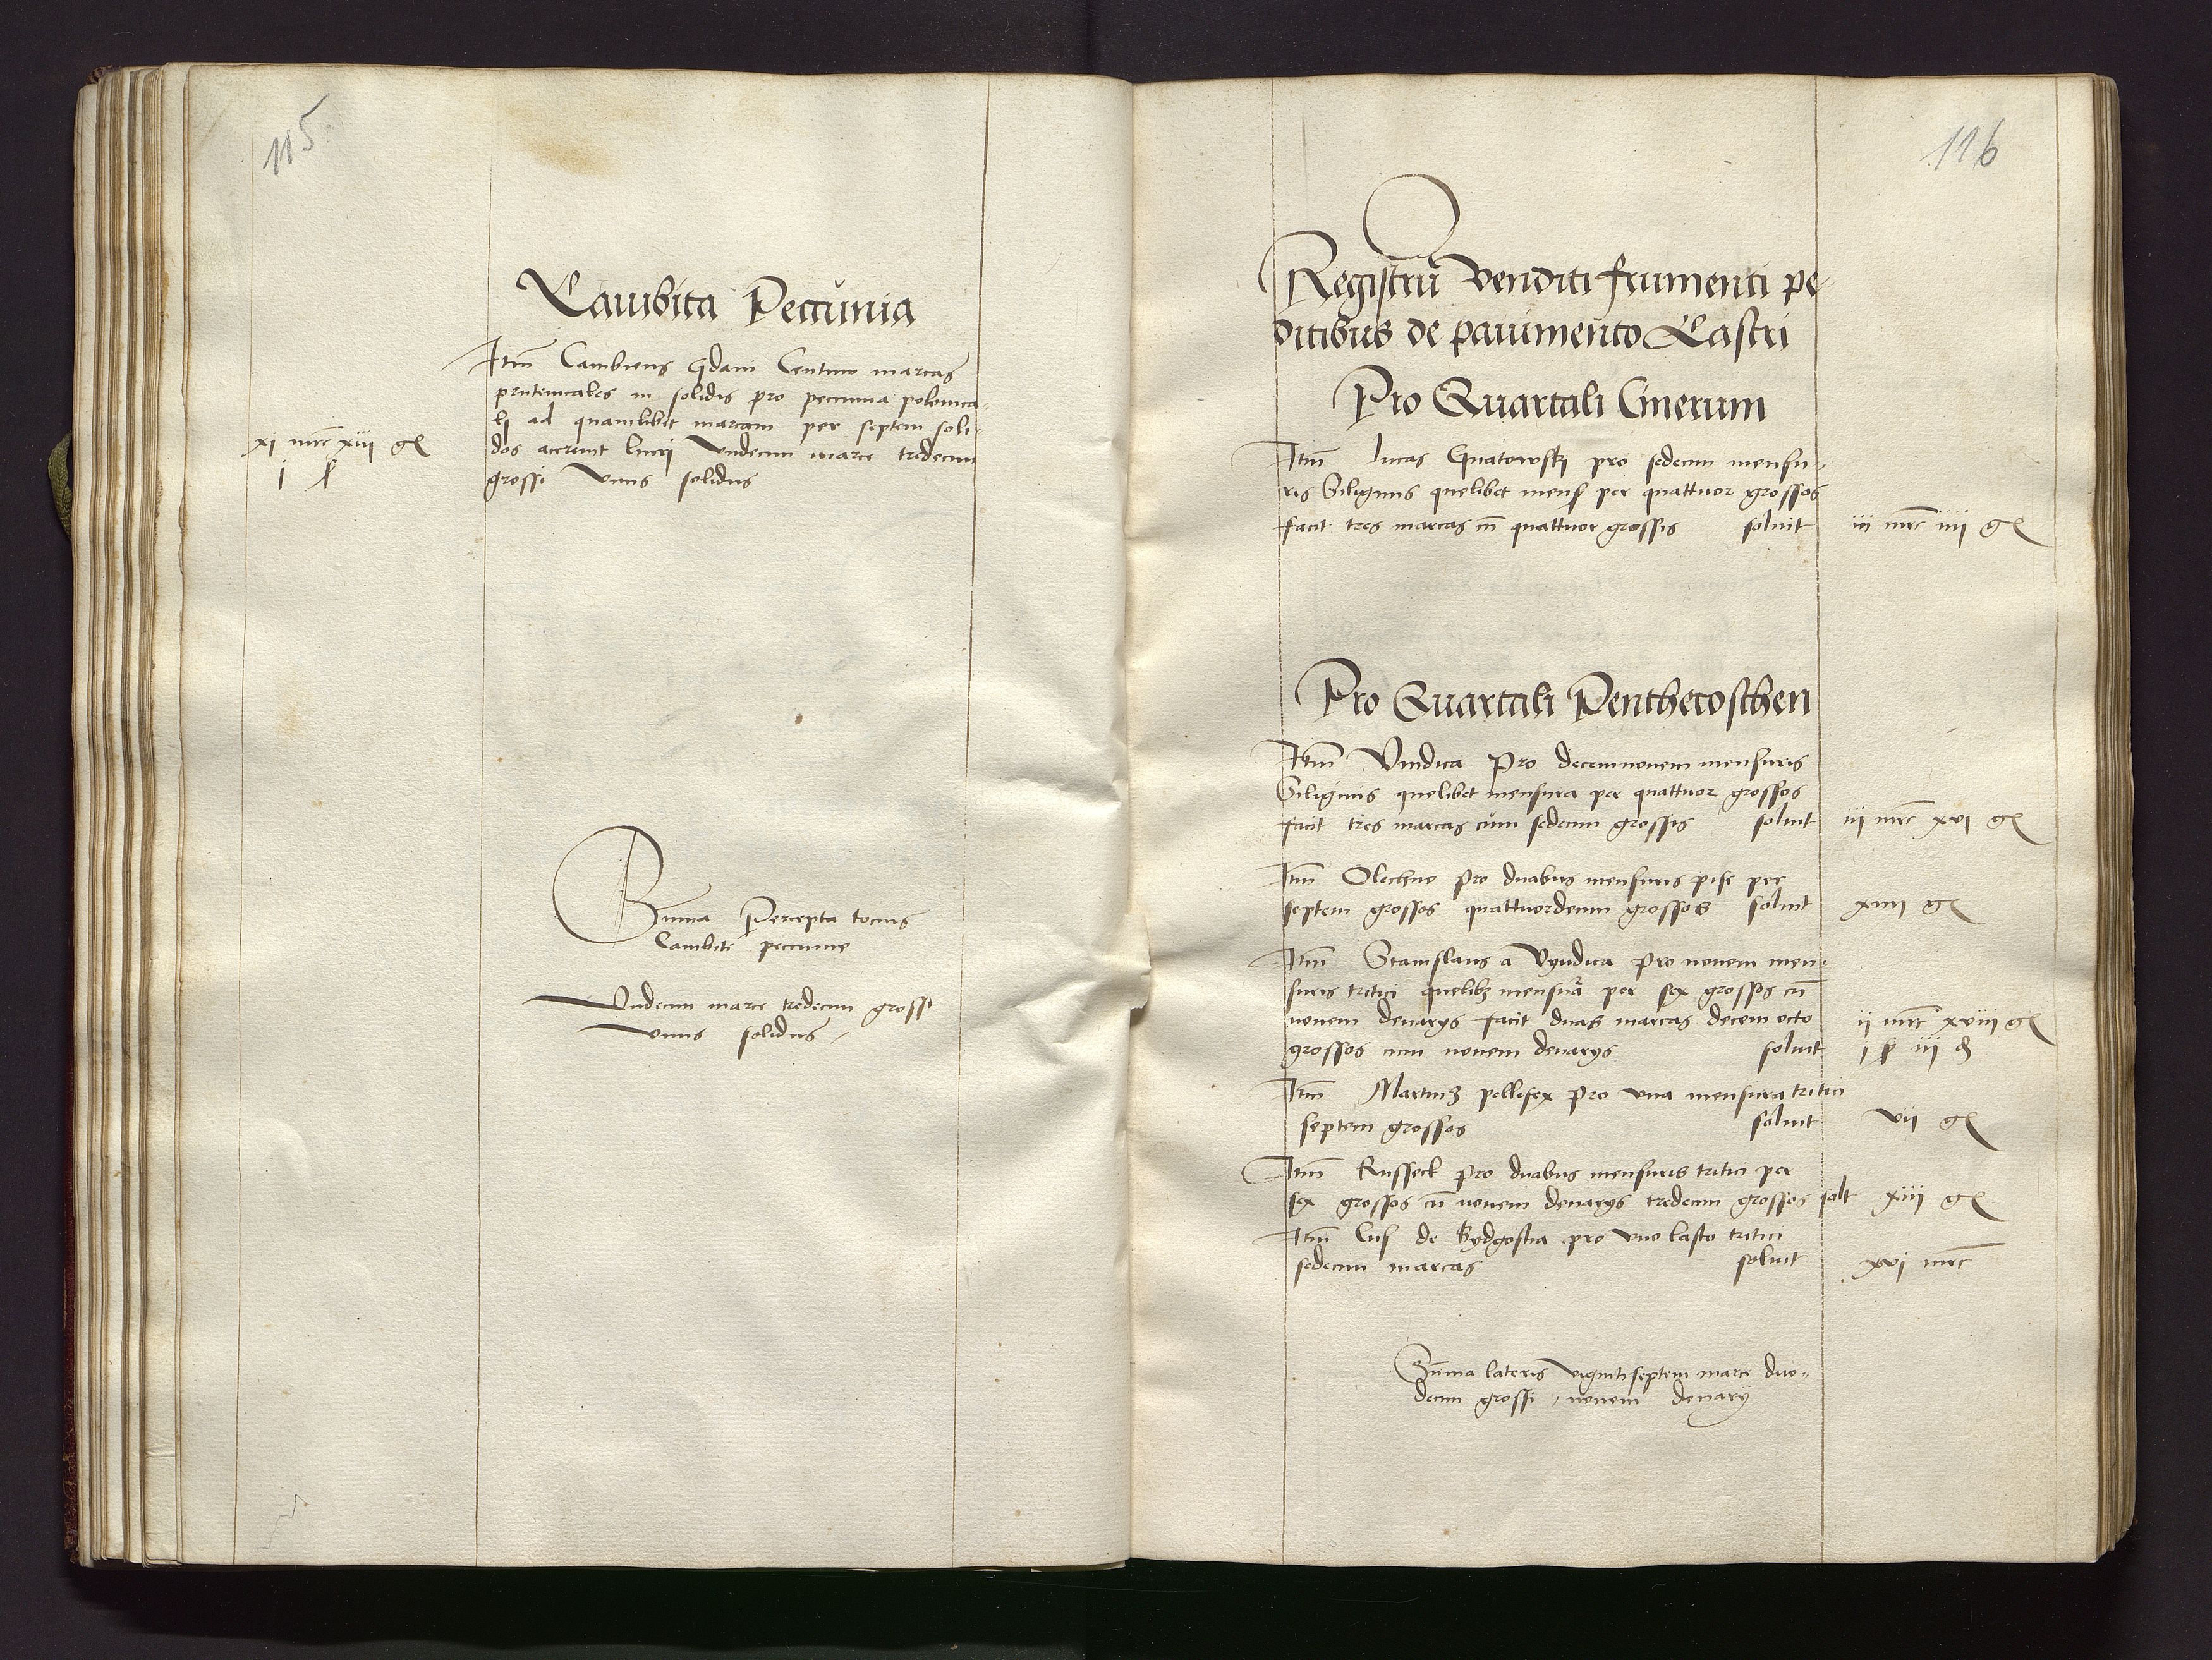 115
Cambita Peccunia
Itm Cambiens Gdani Centum marcas
prutenicales in solidis pro pecunia polonica-
li ad quamlibet marcam per septem soli-
xi mrc xiii gr dos accreuit lucri Vndecim marce tredecim
j ß grossi Vnus solidus
Summa Percepta tocius
Cambite peccunie
Vndecim marce tredecim grossi
vnus solidus
116
Registrū Venditi frumenti pe-
ditibus de pauimento Castri
Pro Quartali Cinerum
Itm lucas Gnatowskj pro sedecim mensu-
ris Siliginis quelibet mens per quattuor grossos
facit tres marcas cū quattuor grossis soluit iii mrc iiij gr
Pro Quartali Penthecosthen
Itm Vmdica Pro decemnouem mensuris
Siliginis quelibet mensura per quattuor grossos
facit tres marcas cum sedecim grossis soluit iij mrc xvi gr
Itm Olechno pro duabus mensuris pise per
septem grossos quattuordecim grossos soluit xiiij gr
Itm Stanislaus a Vyndica pro nouem men-
suris tritici quelibz mensura per sex grossos cū
nouem denarys facit duas marcas decem octo ij mrc xviij gr
grossos cum nouem denarys soluit j ß iij d
Itm Martinz pellifex pro vna mensura tritici
septem grossos soluit vii gr
Itm Russeck pro duabus mensuris tritici per
sex grossos cū nouem denarys tredecim grossos solt xiij gr
Itm de Bydgostia pro vno lasto tritici
sedecim marcas soluit xvj mrc
Summa lateris vigintiseptem marce duo-
decim grossi, nouem denarij